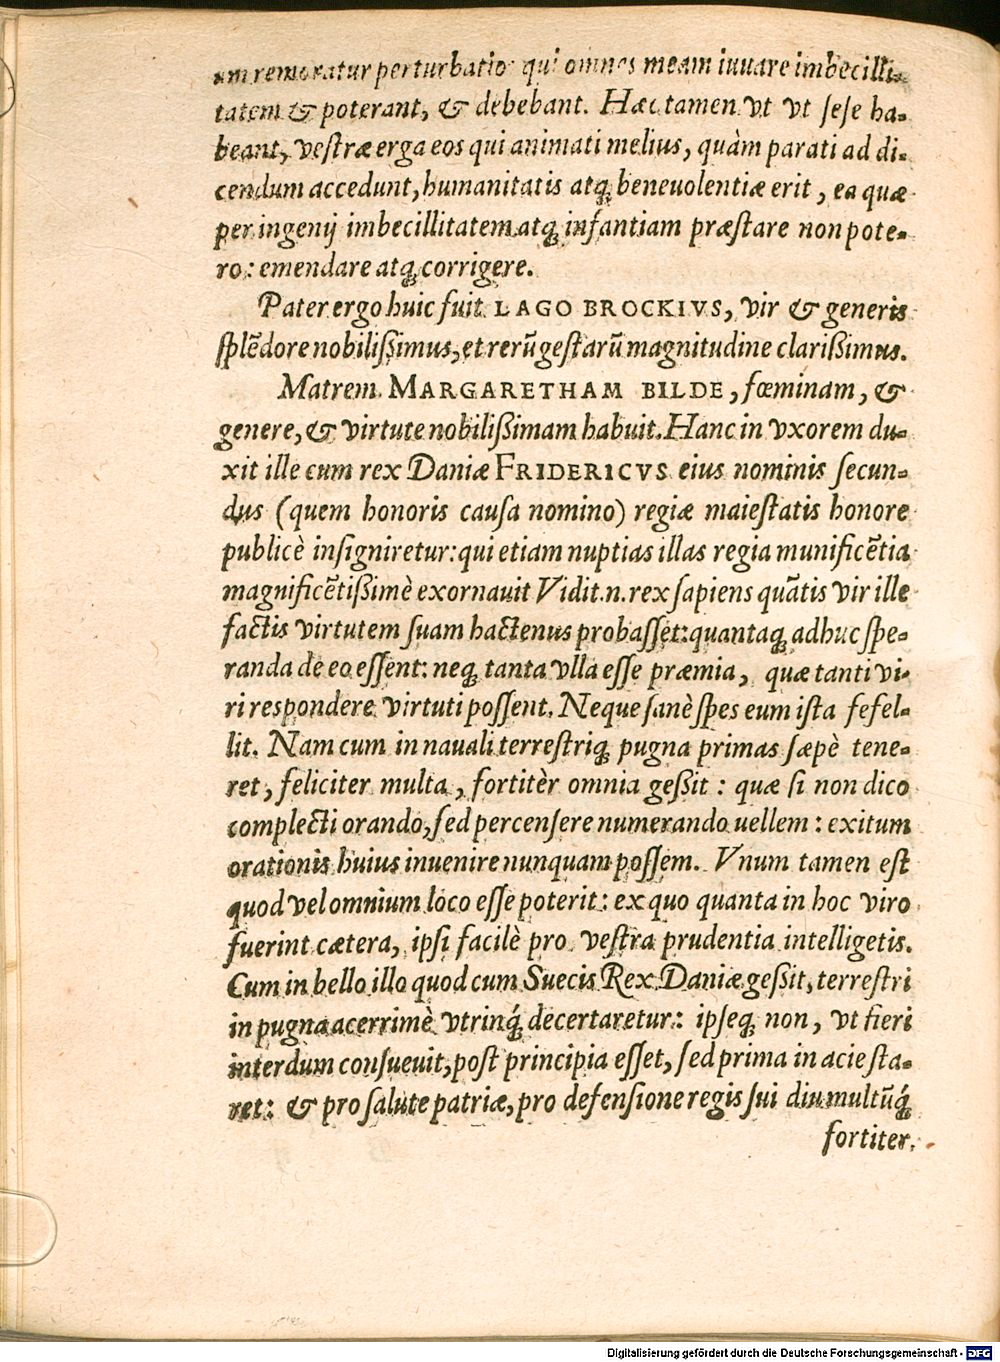 um remoratur perturbatio qui omnes meam iuuare imbecilli-
tatem & poterant, & debebant. Hæc tamen vt vt ſeſe ha-
beant, veſtræ erga eos qui animati melius, quàm parati ad di-
cendum accedunt, humanitatis atq; beneuolentiæ erit, ea quæ
per ingenij imbecillitatem atq; infantiam præſtare non pote-
ro: emendare atq; corrigere.
Pater ergo huic fuit LAGO BROCKIVS, vir & generis
ſplẽdore nobiliſſimus, et rerũ geſtarũ magnitudine clarißimus.
Matrem MARGARETHAM BILDE, fœminam, &
genere, & virtute nobilißimam habuit. Hanc in vxorem du-
xit ille cum rex Daniæ FRIDERICVS eius nominis ſecun-
dus (quem honoris cauſa nomino) regiæ maieſtatis honore
publicè inſigniretur: qui etiam nuptias illas regia munificẽtia
magnificẽtißimè exornauit Vidit .n. rex ſapiens quãtis vir ille
factis virtutem ſuam hactenus probaſſet: quantaq; adhuc ſpe-
randa de eo eſſent: neq; tanta vlla eſſe præmia, quæ tanti vi-
ri respondere virtuti poſſent. Neque ſanè ſpes eum iſta fefel-
lit. Nam cum in nauali terreſtriq; pugna primas ſæpè tene-
ret, feliciter multa, fortitèr omnia geßit: quæ ſi non dico
complecti orando, ſed percenſere numerando uellem: exitum
orationis huius inuenire nunquam poſſem. Vnum tamen eſt
quod vel omnium loco eſſe poterit: ex quo quanta in hoc viro
fuerint cætera, ipſi facilè pro veſtra prudentia intelligetis.
Cum in bello illo quod cum Suecis Rex Daniæ geßit, terreſtri
in pugna acerrimè vtrinq́; decertaretur: ipſeq; non, vt fieri
interdum conſueuit, poſt principia eſſet, ſed prima in acie ſta-
ret: & pro ſalute patriæ, pro defenſione regis ſui diu multũq́;
fortiter.
Digitalisierung gefördert durch die Deutsche Forschungsgemeinschaft - DFG